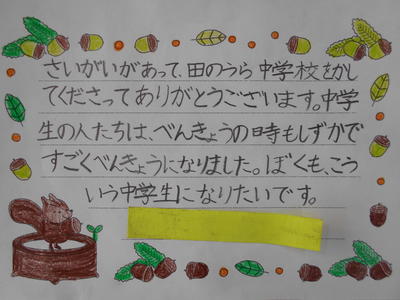 さいがいがあって、田のうら中学校をかし
てくださってありがとうございます。中学
生の人たちは、べんきょうの時もしずかで
すごくべんきょうになりました。ぼくも、こう
いう中学生になりたいです。